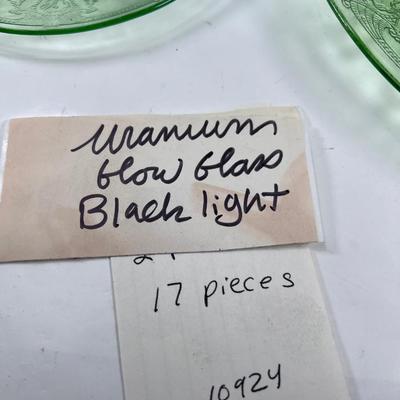 Uranium
Glow Glass
Black light
17 pieces
10924